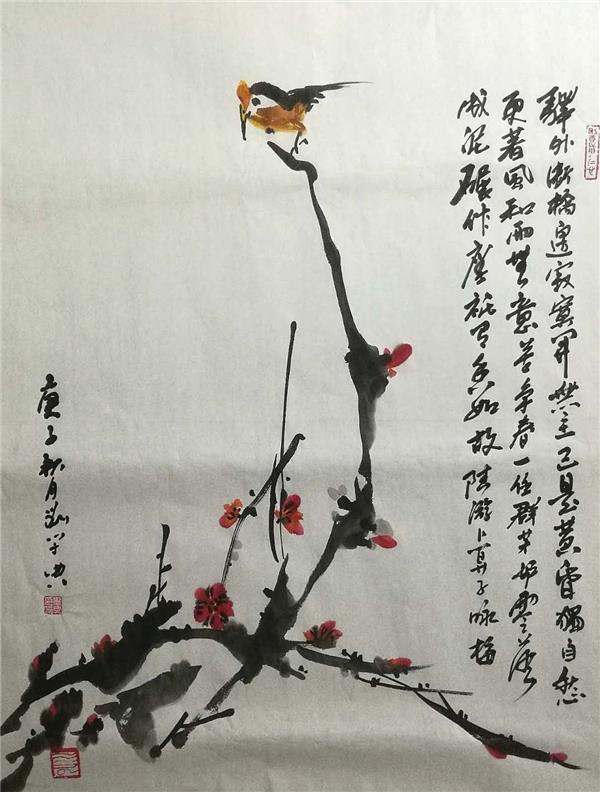 驛外断橋邊寂寞開無主已是黄昏獨自愁
更著風和雨無意苦争春一任群芳妒零落
成泥碾作塵祇有香如故陸游卜算子咏梅
庚子秋月